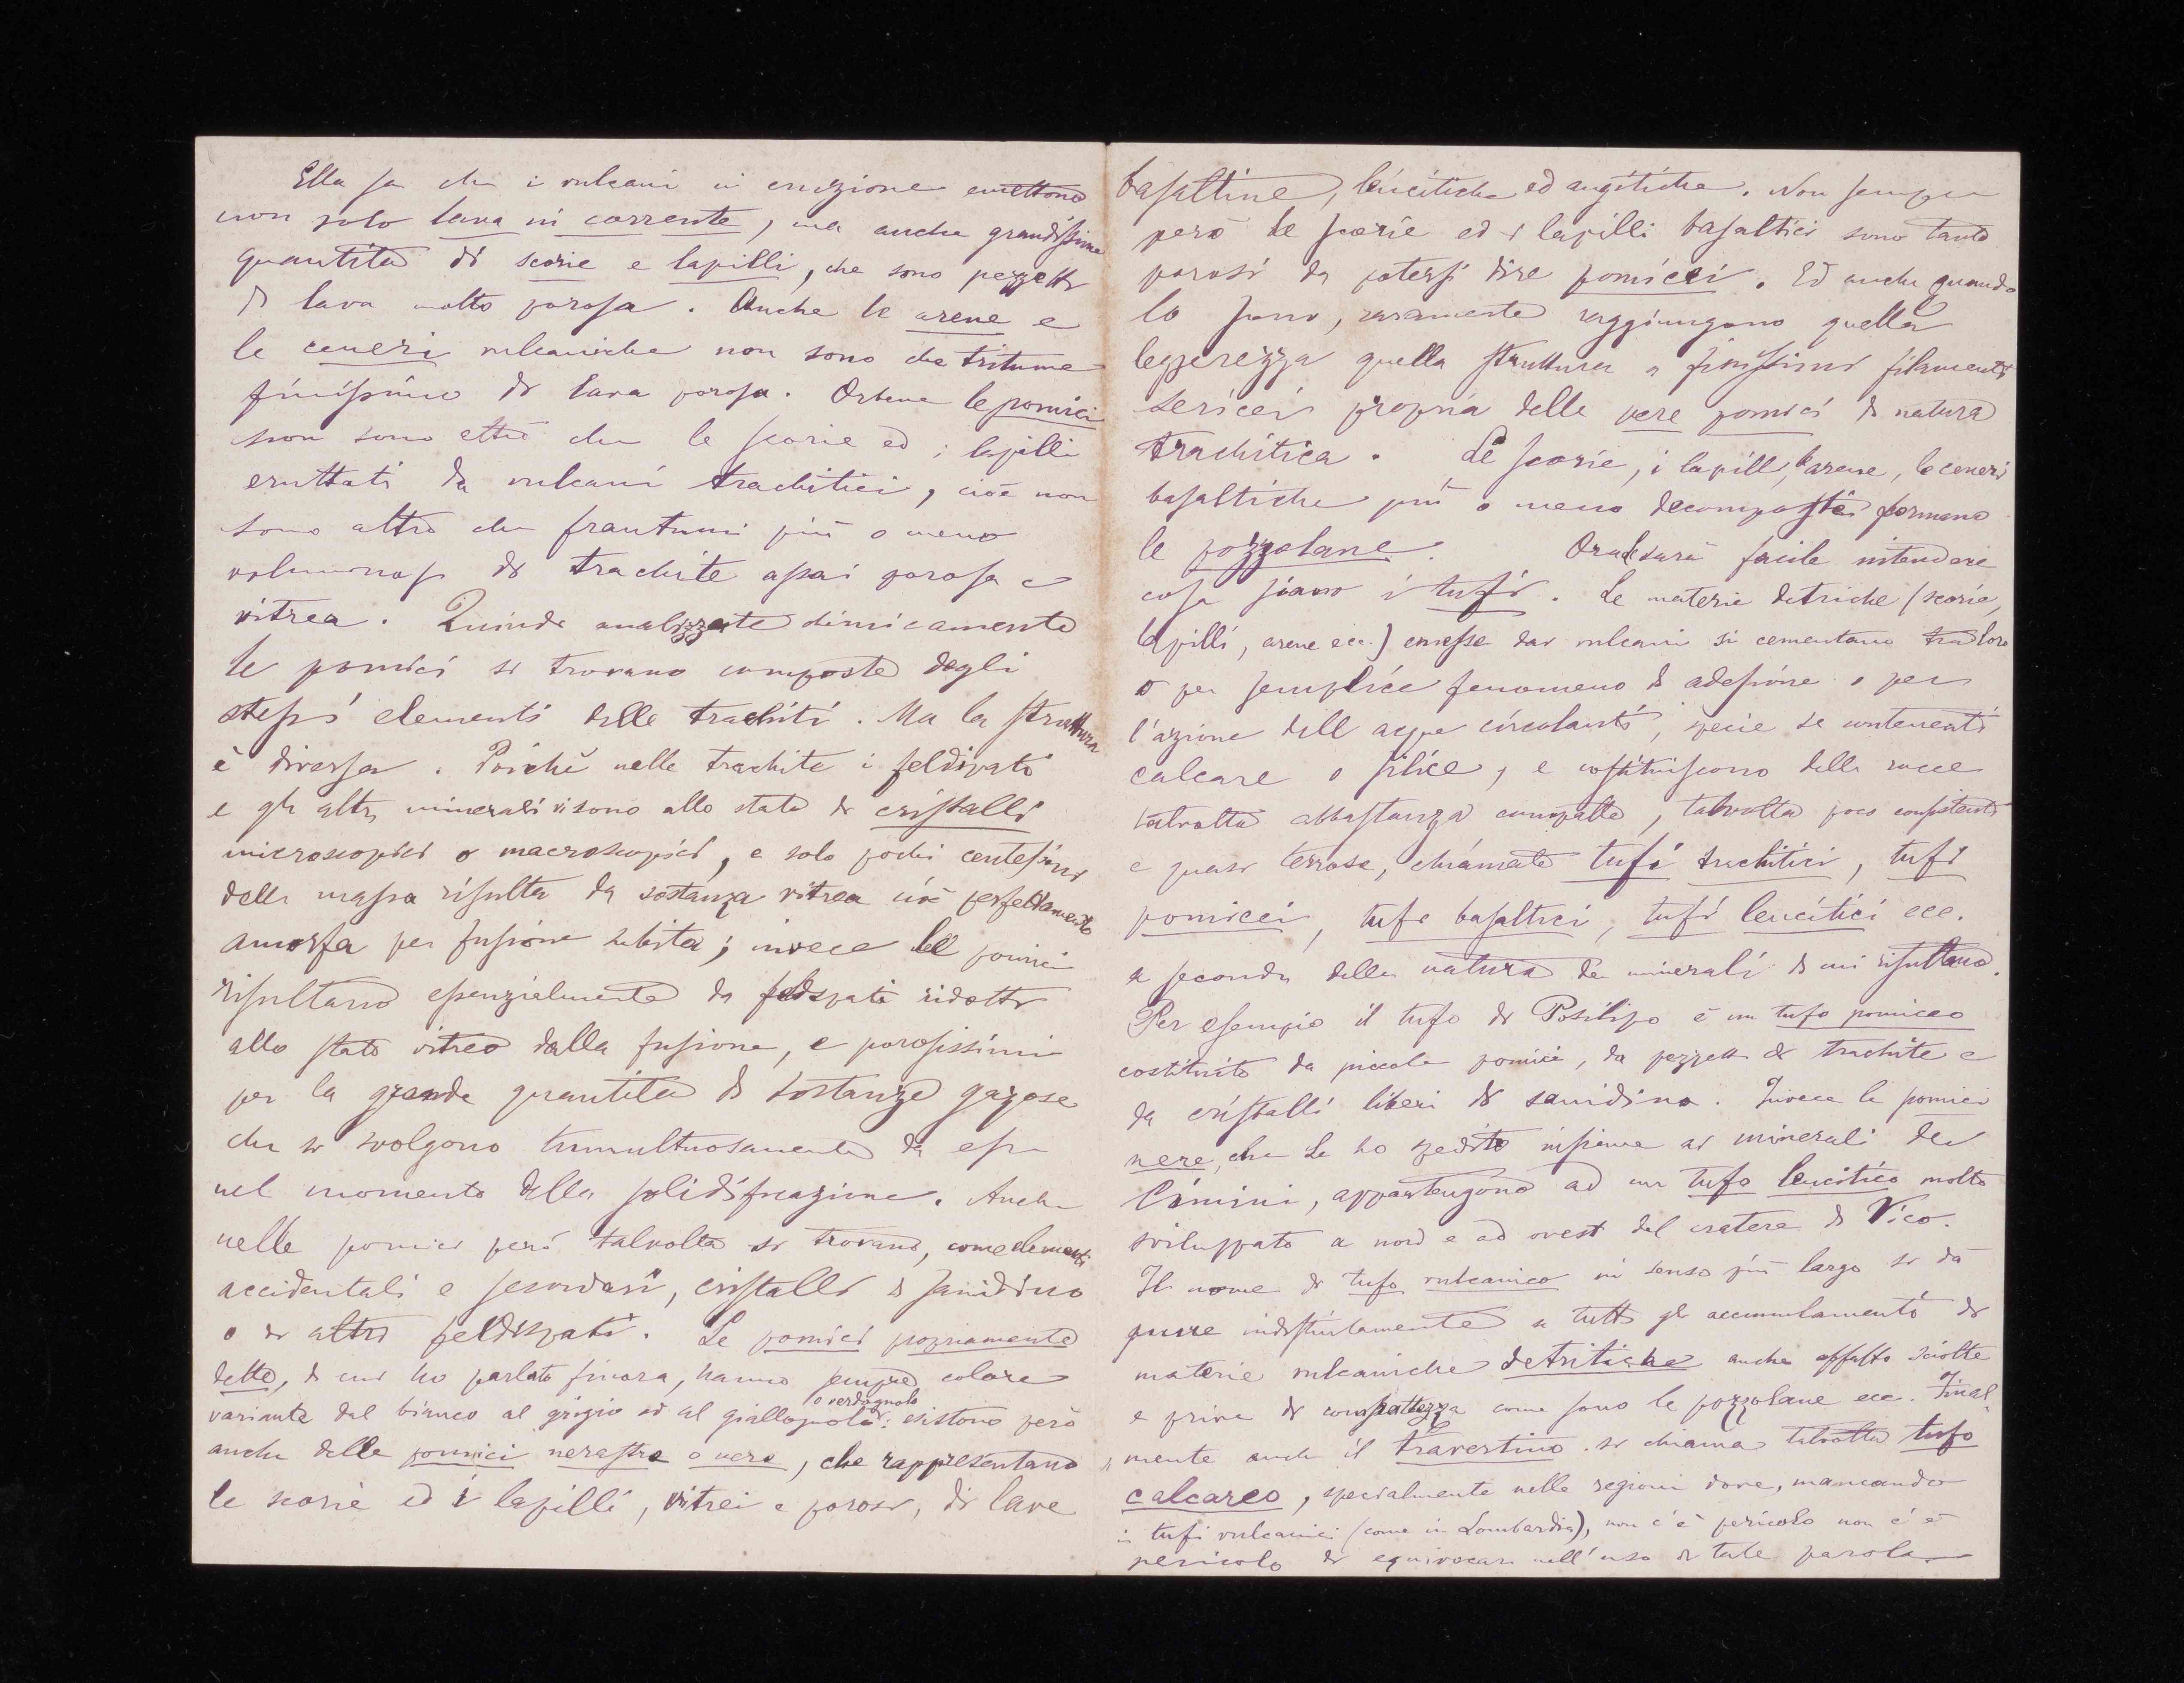 Ella sa che i vulcani in eruzione emettono
non solo lava in corrente, ma anche grandissime
quantità di scorie e lapilli, che sono pezzetti
di lava molto porosa. Anche le arene e
le ceneri vulcaniche non sono che tritume
finissimo di lava porosa. Orbene le pomici
non sono altro che le scorie ed i lapilli
eruttati da vulcani trachitici, cioè non
sono altro che frantumi più o meno
voluminosi di trachite assai porosa e
vitrea. Quindi analizzate chimicamente
le pomici si trovano composte degli
stessi elementi delle trachiti. Ma la struttura
è diversa. Poichè nelle trachite i feldispati
e gli altri minerali vi sono allo stato di cristalli
microscopici o macroscopici, e solo pochi centesimi
della massa risulta da sostanza vitrea cioè perfettamente
amorfa per fusione subita; invece le pomici
risultano essenzialmente da feldspati ridotti
allo stato vitreo dalla fusione, e porosissimi
per la grande quantità di sostanze gazose
che si svolgono tumultuosamente da esse
nel momento della solidificazione. Anche
nelle pomici però talvolta si trovano, come elementi
accidentali e secondari, cristalli di sanidino
o di altri feldispati. Le pomici propriamente
dette, di cui ho parlato finora, hanno sempre colore
variante dal bianco al grigio ed al giallognolo o verdognolo: esistono però
anche delle pomici nerastre o nere, che rappresentano
le scorie ed i lapilli, vitrei e porosi, di lave
basaltine, leucitiche ed augitiche. Non sempre
però le scorie ed i lapilli basaltici sono tanto
porosi da potersi dire pomicei. Ed anche quando
lo sono, raramente raggiungono quella
leggerezza quella struttura a finissimi filamenti
sericei propria delle vere pomici di natura
trachitica. Le scorie, i lapilli, le arene, le ceneri
basaltiche più o meno decomposte formano
le pozzolane. Ora le sarà facile intendere
cosa siano i tufi. Le materie detritiche (scorie,
lapilli, arene ecc.) emesse dai vulcani si cementano tra loro
o per semplice fenomeno di adesione o per
l'azione dell acque circolanti, specie se contenenti
calcare o silice, e costituiscono delle rocce
talvolta abbastanza compatte, talvolta poco consistenti
e quasi terrose, chiamate tufi trachitici, tufi
pomicei, tufi basaltici, tufi leucitici ecc.
a seconda della natura dei minerali di cui risultano.
Per esempio il tufo di Posilipo è un tufo pomiceo
costituito da piccole pomici, da pezzetti di trachite e
da cristalli liberi di sanidino. Invece le pomici
nere, che Le ho spedito insieme ai minerali dei
Cimini, appartengono ad un tufo leucitico molto
sviluppato a nord e ad ovest del cratere di Vico.
Il nome di tufo vulcanico in senso più largo si dà
pure indistintamente a tutti gli accumulamenti di
materie vulcaniche detritiche anche affatto sciolte
e prive di compattezza come sono le pozzolane ecc. Final-
mente anche il travertino si chiama talvolta tufo
calcareo, specialmente nelle regioni dove, mancando
i tufi vulcanici (come in Lombardia), non c'è pericolo non c'è
pericolo di equivocare nell'uso di tale parola